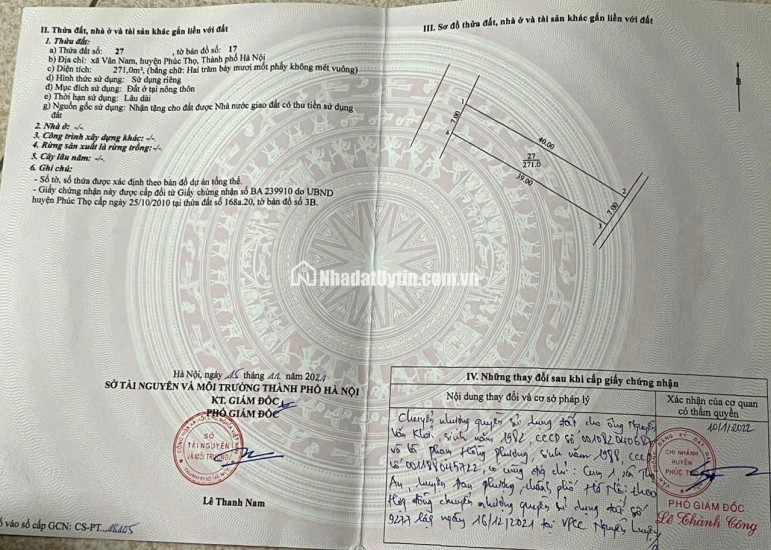 II. Thửa đất, nhà ở và tài sản khác gắn liền với đất
1. Thửa đất:
a) Thửa đất số: 27 , tờ bản đồ số: 17
b) Địa chỉ: xã Vân Nam, huyện Phúc Thọ, Thành phố Hà Nội
c) Diện tích: 271,0m², (bằng chữ: Hai trăm bảy mươi mốt phẩy không mét vuông)
d) Hình thức sử dụng: Sử dụng riêng
đ) Mục đích sử dụng: Đất ở tại nông thôn
e) Thời hạn sử dụng: Lâu dài
g) Nguồn gốc sử dụng: Nhận tặng cho đất được Nhà nước giao đất có thu tiền sử dụng
đất
2. Nhà ở: -/-
3. Công trình xây dựng khác: -/-
4. Rừng sản xuất là rừng trồng: -/-
5. Cây lâu năm: -/-
6. Ghi chú:
- Số tờ, số thửa được xác định theo bản đồ dự án tổng thể.
- Giấy chứng nhận này được cấp đổi từ Giấy chứng nhận số BA 239910 do UBND
huyện Phúc Thọ cấp ngày 25/10/2010 tại thửa đất số 168a.20, tờ bản đồ số 3B.
Hà Nội, ngày 15 tháng 11 năm 2021
SỞ TÀI NGUYÊN VÀ MÔI TRƯỜNG THÀNH PHỐ HÀ NỘI
KT. GIÁM ĐỐC
PHÓ GIÁM ĐỐC
SỞ
TÀI NGUYÊN
VÀ MÔI TRƯỜNG
Lê Thanh Nam
Số vào sổ cấp GCN: CS-PT
III. Sơ đồ thửa đất, nhà ở và tài sản khác gắn liền với đất
B
1
7.00
4
40.00
27
271.0
39.00
2
7.00
3
NhadatUytin.com.vn
IV. Những thay đổi sau khi cấp giấy chứng nhận
Nội dung thay đổi và cơ sở pháp lý
Xác nhận của cơ quan
có thẩm quyền
Chuyển nhượng quyền sử dụng đất cho ông Nguyễn
Văn Khởi, sinh năm 1982, CCCD số
và bà Phan Hồng Phương, sinh năm 1988, CCCD
số 001188045722, có cùng địa chỉ: Cụm 1, xã Thọ
An, huyện Đan Phượng, thành phố Hà Nội; theo
Hợp đồng chuyển nhượng quyền sử dụng đất số
9277 lập ngày 16/12/2021 tại VPCC Nguyễn
10/1/2022
CHI NHÁNH
HUYỆN
PHÚC THỌ
PHÓ GIÁM ĐỐC
Lê Thành Công